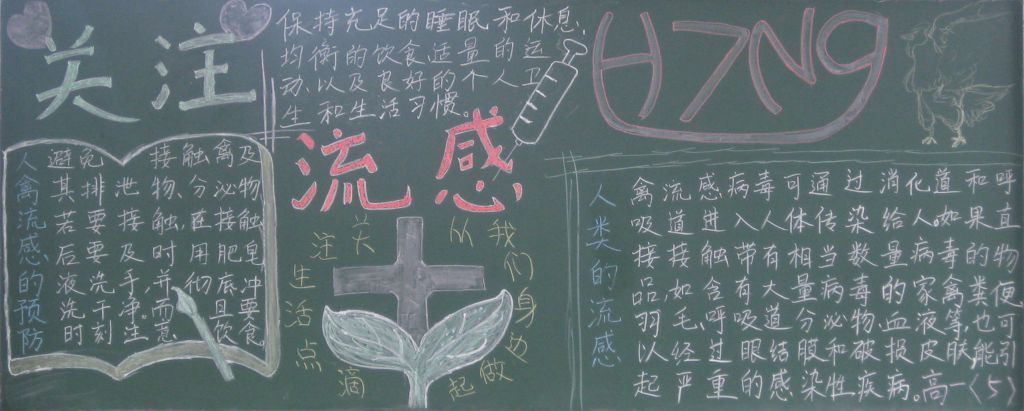 关注
保持充足的睡眠和休息,
均衡的饮食适量的运
动、以及良好的个人卫
生和生活习惯。
流感
H7N9
人禽流感的预防
避免接触禽及
其排泄物、分泌物
若要接触,在接触
后要及时用肥皂
液洗手,并彻底冲
洗干净。而且要
时刻注意饮食
关注生活点滴
从我们身边做起
人类的流感
禽流感病毒可通过消化道和呼
吸道进入人体传染给人。如果直
接接触带有相当数量病毒的物
品,如含有大量病毒的家禽粪便
羽毛、呼吸道分泌物、血液等,也可
以经过眼结膜和破损皮肤能引
起严重的感染性疾病。高一(5)